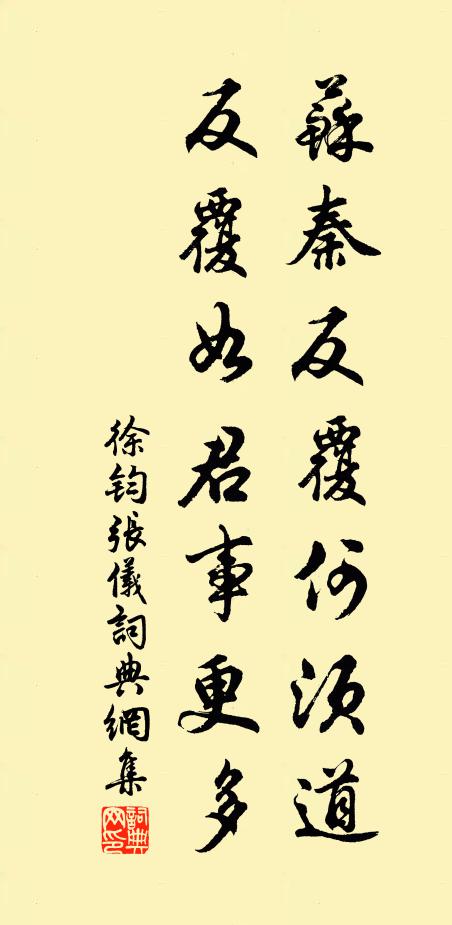 蘇秦反覆何須道
反覆如君事更多
徐鈞張儀詞典網集
詞典网印